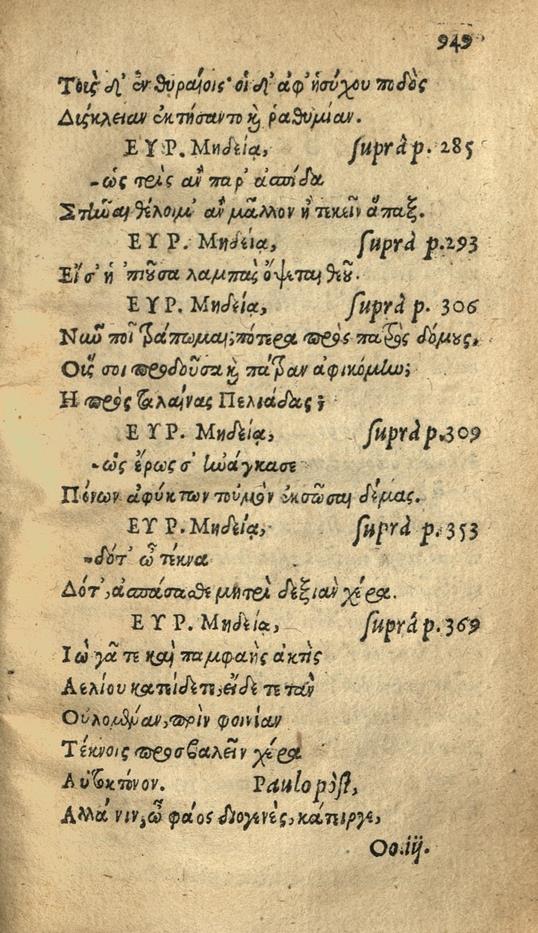 949
Τοὺς δ' ἐν θυραίοις· οἱ δ' ἀφ' ἡσύχου ποδὸς
Δύσκλειαν ἐκτήσαντο καὶ ῥαθυμίαν.
ΕΥΡ. Μηδείᾳ, suprà p. 285
-ὡς τρὶς ἂν παρ' ἀσπίδα
Στῆναι θέλοιμ' ἂν μᾶλλον ἢ τεκεῖν ἅπαξ.
ΕΥΡ. Μηδείᾳ, suprà p.293
Εἴ σ' ἡ 'πιοῦσα λαμπὰς ὄψεται θεοῦ.
ΕΥΡ. Μηδείᾳ, suprà p. 306
Νῦν ποῖ τράπωμαι; πότερα πρὸς πατρὸς δόμους,
Οὓς σοι προδοῦσα καὶ πάτραν ἀφικόμην;
Η πρὸς ταλαίνας Πελιάδας;
ΕΥΡ. Μηδείᾳ, suprà p.309
-ὡς ἔρως σ' ἠνάγκασε
Πόνων ἀφύκτων τοὐμὸν ἐκσῶσαι δέμας.
ΕΥΡ. Μηδείᾳ, suprà p. 353
-δότ' ὦ τέκνα
Δότ', ἀσπάσασθε μητρὶ δεξιὰν χέρα.
ΕΥΡ. Μηδείᾳ, suprà p. 369
Ιὼ γᾶ τε καὶ παμφαὴς ἀκτὶς
Αελίου κατίδετε, εἴδετε τὰν
Ουλομέναν, πρὶν φοινίαν
Τέκνοις προσβαλεῖν χέρα
Αὐτοκτόνον. Paulo pòst,
Αλλά νιν, ὦ φάος διογενὲς, κάτειργε,
Oo.iij.